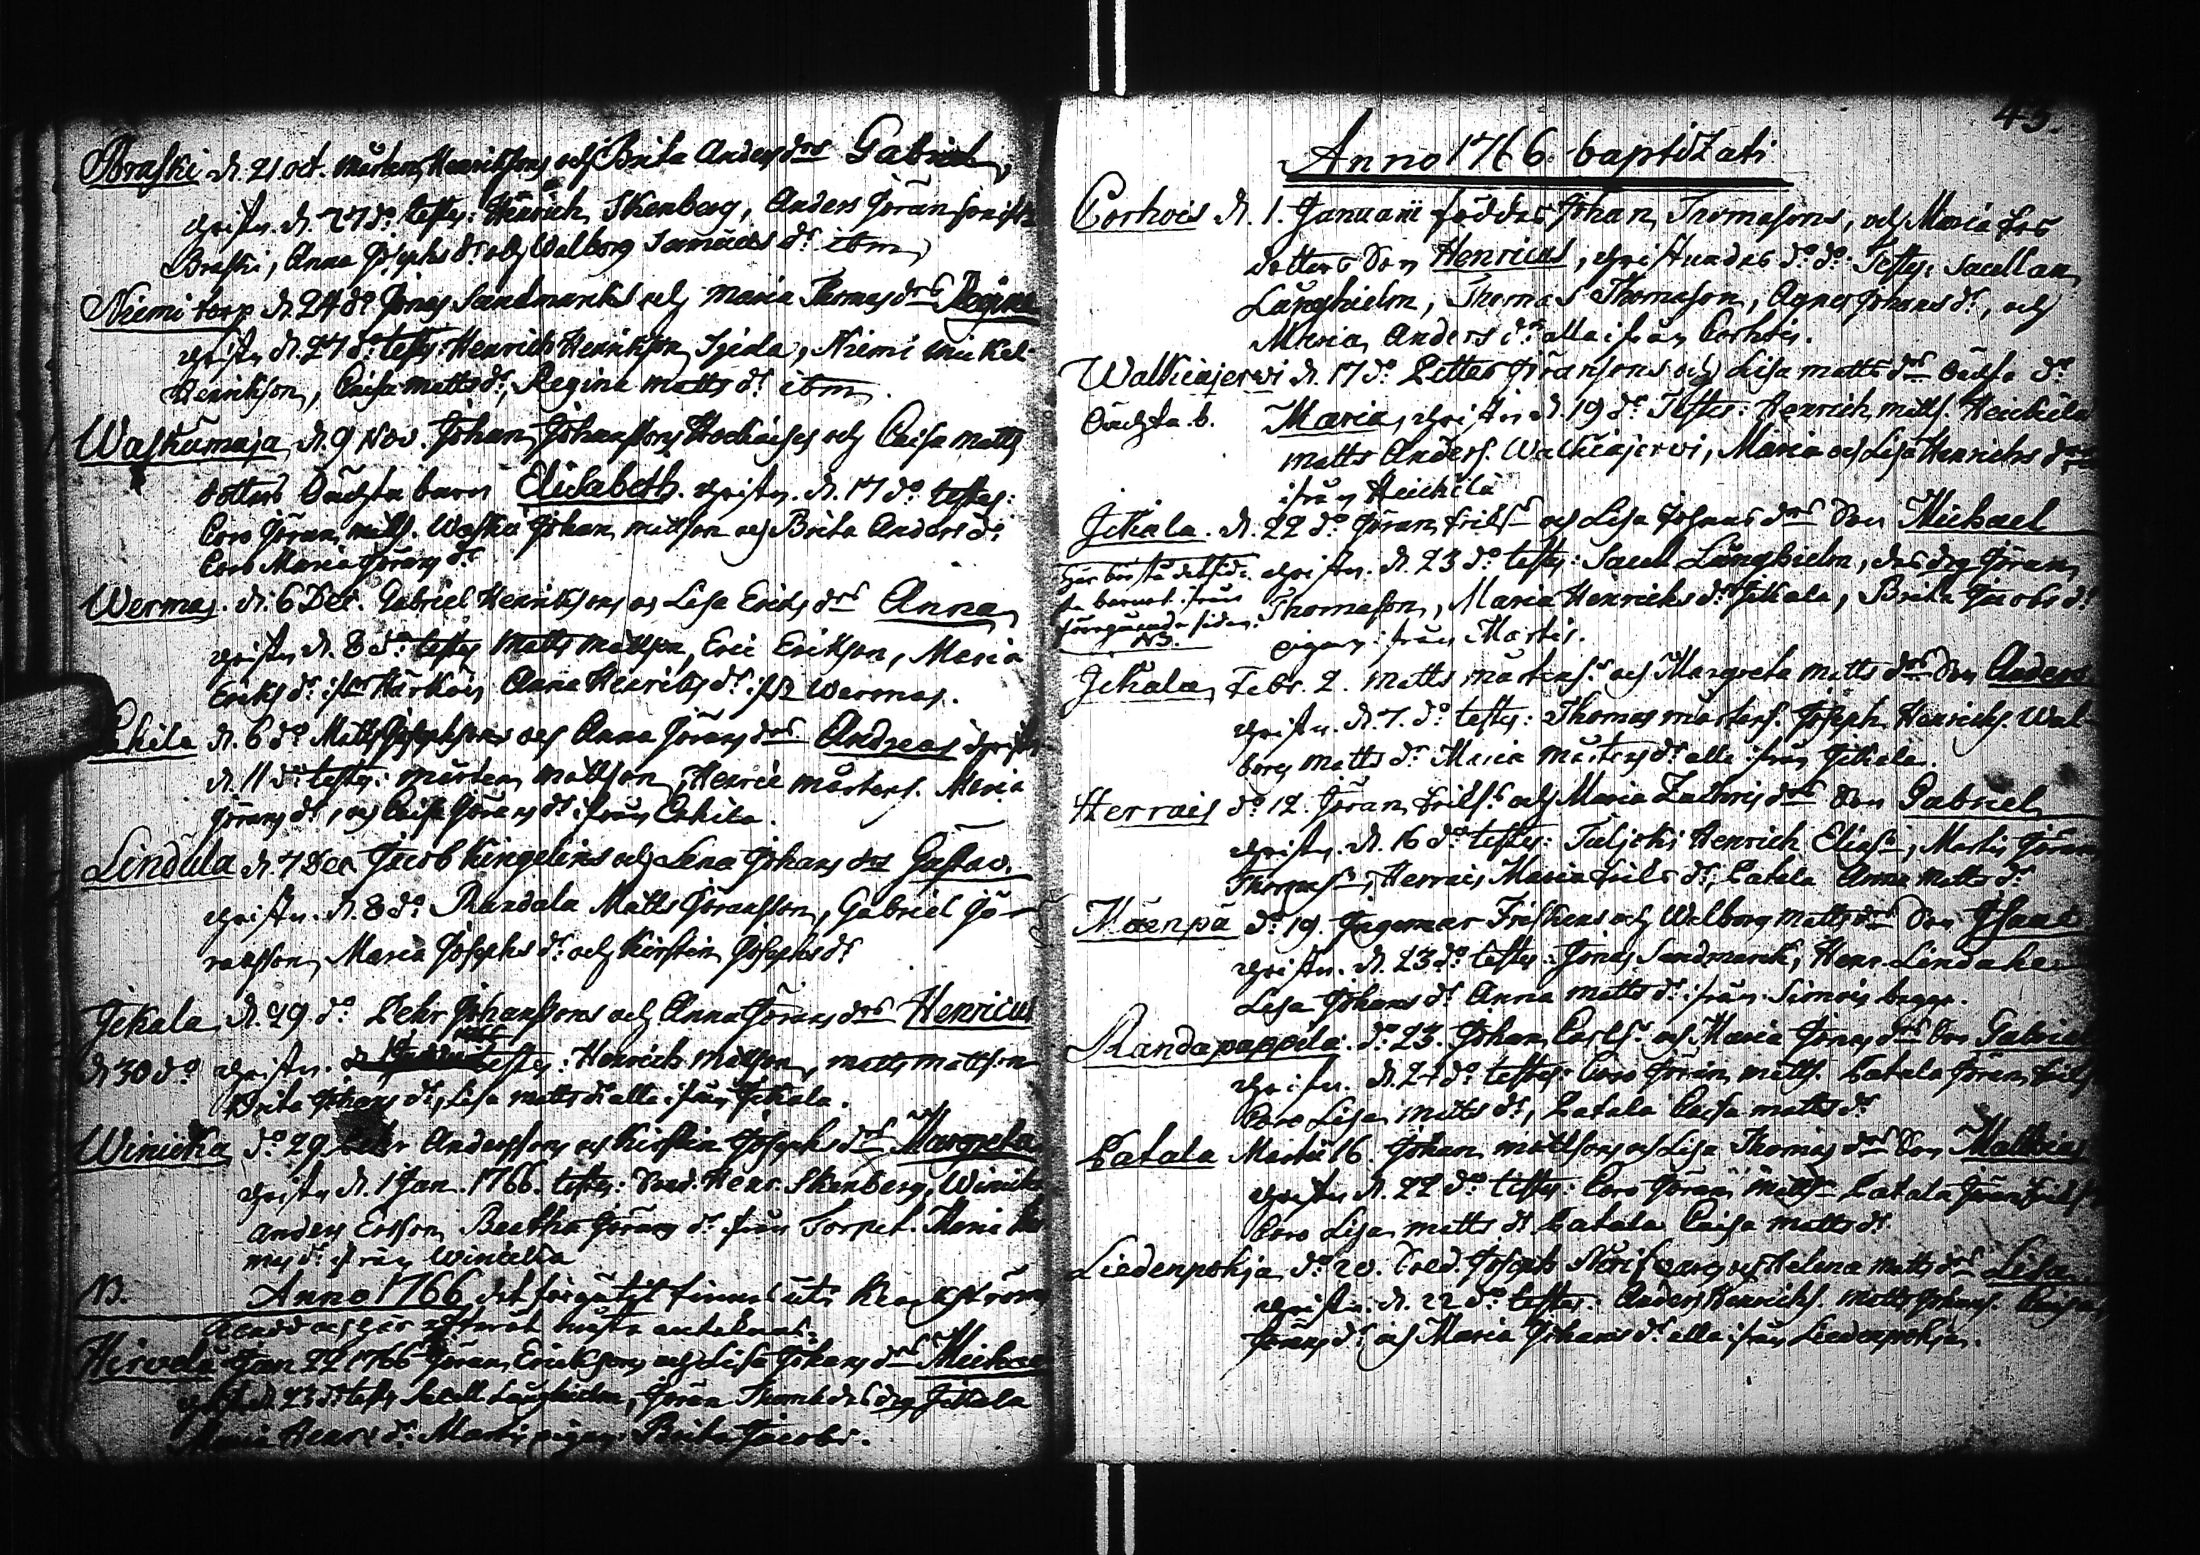 Braski d. 21 oct. Mårten Henricksons och Brita Anders drs Gabriel,
christn. d. 27 do testes: Henrich Skenberg, Anders Göransson ifr
Braski, Anna Josephs dr och Walborg Samuels dr ibm
Niemi torp d. 24 do Jonas Sandmarks och Maria Thomas drs Regina
christn d. 27 do testes: Henrich Henrikson Sjeda, Niemi Mickel
Henrikson, Caisa Matts dr, Regina Matts dr ibm.
Waskumaja d. 9 Nov. Johan Johanssons och Caisa Matts
dotters Oächta barn Elisabeth. christn. d. 17 do testes:
Coro Göran Matts. Waska Johan Mattson och Brita Anders dr
Coro Maria Görans dr
Wermas. d. 6 Dec. Gabriel Henriksons och Lisa Erichs drs Anna
christn d. 8 do testes Matts Mattson, Eric Erikson, Maria
Eriks dr ifr Härköis Anna Henriks dr ifr Wermas.
d. 6 do Matts Josephsons och Anna Görans drs Andreas christn
d. 11 do testes: Mårten Mattson, Henric Mårtens. Maria
Görans dr, och Caisa Görans dr ifrån
Lindula d. 7 Dec Jacob Kingelins och Lena Johans drs Gustav.
christn. d. 8 do Randala Matts Göransson, Gabriel Gö-
ransson, Maria Josephs dr och Kirstin Josephs dr
Jekala d. 29. do Pehr Johanssons och Anna Görans drs Henricus
d 30 do christn. testes: Henrich Mattson, Matts Mattson
Brita Johans dr, Lisa Matts dr alla ifrån Jekala.
Winicka do 29 Pehr Anderssons och Kirstin Josephs drs Margreta
christn d. 1 Jan. 1766. testes: Henr. Skenberg, Winicka
Anders Ersson, Beatha Görans dr ifrån Torpet. Maria
mas dr ifrån Winicka
NB. Anno 1766 det förgätit finnas uti
anteknas.
Hirvela Jan 22 1766 Göran Eriksons och Lisa Johans drs Michael
christn d. 23 do testes Sacell. Ljunghielm, Göran Jekala
Maria Henr: dr Martis pigan Brita Jacobs.
43.
Anno 1766 baptizati
Corhois d. 1. Januarii föddes Johan Thomasons, och Maria
dotters Son Henricus, christnades do do. Testes: Sacellan
Ljunghielm, Thomas Thomason, Agnes Johans dr, och
Maria Anders dr alla ifrån Corhois.
Walkiajerwi d. 17 do Petter Göransons och Lisa Matts drs oächta dr
Oächta b. Maria, christn d. 19 do Testes: Henrich Matts. Heickila
Matts Anders. Walkiajerwi, Maria och Lisa Henrichs
ifrån Heickila
Jekala. d. 22 do Göran Erikss och Lisa Johans drs Son Michael
christn. d. 23 do testes: Sacell Ljunghielm, Göran
barnet från
föregående sidan.
NB.
Thomason, Maria Henrichs dr Jekala, Brita Jacobs dr
pigan ifrån Martis.
Jekala Febr. 2. Matts Mårtens. och Margreta Matts drs Son Anders
christn. d. 7. do testes: Thomas Mårtens. Joseph Henrichs. Wal-
borg Matts dr Maria Mårtens dr alla ifrån Jekala.
Herrais do 12. Göran Erikss och Maria Zachris drs Son Gabriel
christn. d. 16 do testes: Tuljoki Henrich Eliass, Martis Göran
Thomass, Herrais Maria Eriks dr, Latala Anna Matts dr
Mäenpä do 19. Ingemar Friskens och Walborg Matts drs Son Johans
christn. d. 23 do testes: Jonas Sandmarck, Henr. Lindahl
Lisa Johans dr Anna Matts dr ifrån Simois begge.
Randapappila. do 23. Johan Carlss. och Maria Jonas drs Son Gabriel
christn. d. 24 do testes: Coro Göran Matts. Latala Göran Eriks.
Coro Lisa Matts dr, Latala Caisa Matts dr
Latala Martii 16. Johan Mattsons och Lisa Thomas drs Son Matthias
christn d. 22 do testes: Coro Göran Matts. Latala Göran Eriks
Coro Lisa Matts dr Latala Caisa Matts dr
Liedenpohja do 20. Joseph och Helena Matts drs Lisa
christn. d. 22 do testes: Anders Henrichs. Matts Johans. Caisa
Görans dr och Maria Johans dr alla ifrån Liedenpohja.